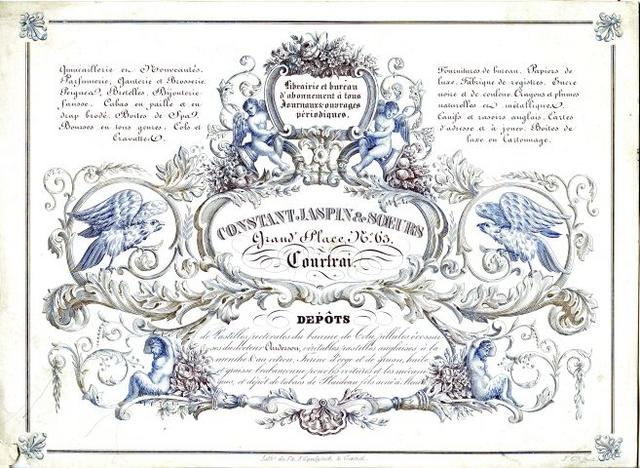 Quincaillerie en Nouveautés.
Parfumerie, Ganterie et Brosserie
Peignes, Bretelles, Bijouterie
fausse. Cabas en paille et en
drap brodé. Boîtes de Spa.
Bourses en tous genres. Cols et
Cravattes.
Librairie et bureau
d'abonnement à tous
Journaux, ouvrages
périodiques.
Fournitures de bureau. Papiers de
luxe. Fabrique de registres. Encre
noire et de couleur. Crayons et plumes
naturelles et métalliques.
Canifs et rasoirs anglais. Cartes
d'adresse et à jouer. Boîtes de
luxe en Cartonnage.
CONSTANT JASPIN & SŒURS
Grand' Place, No. 65.
Courtrai.
DEPÔTS
de Pastilles pectorales du baume de Tolu, pillules écossai
ses du docteur Anderson, véritables pastilles anglaises à la
menthe, Eau Farine d'orge et de gruau, huile
et graisse brabançonne pour les voitures et les
et dépôt de tabacs de